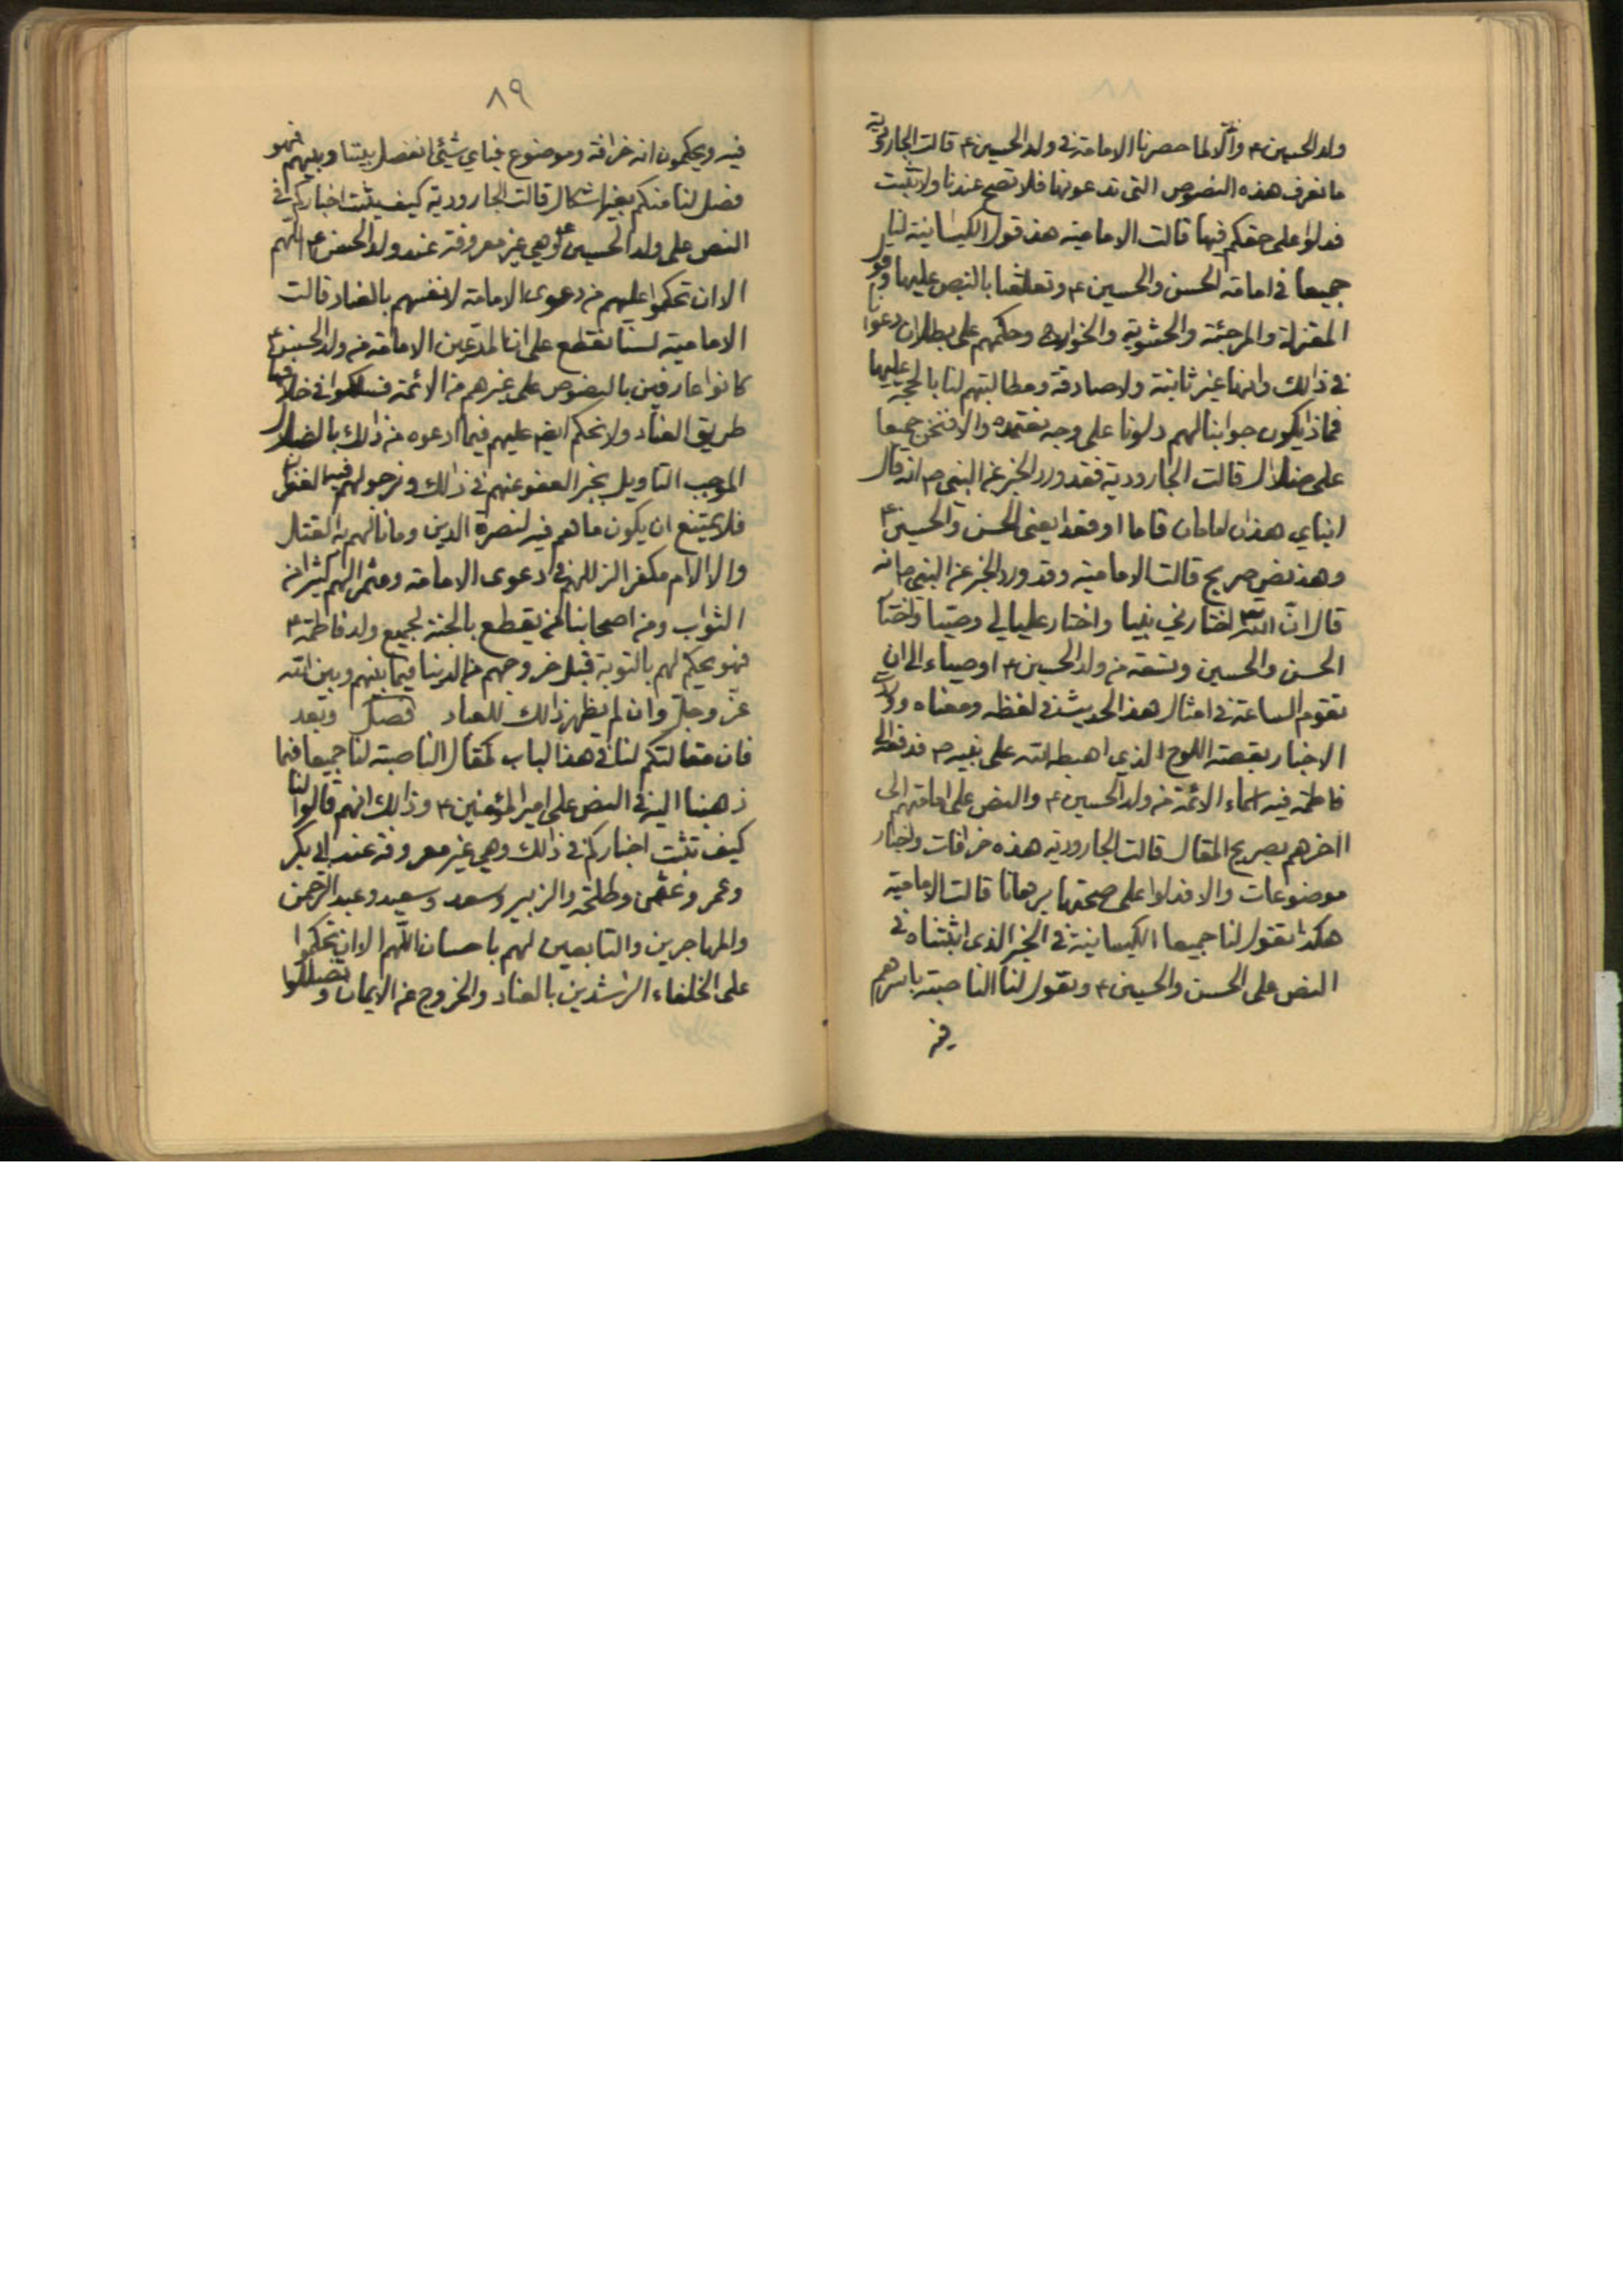 ٨٨
ولد الحسين ؑ والّا لما حصرنا الامامة في ولد الحسين ؑ قالت الجارودية
ما نعرف هذه النصوص التي تدعونها فلا تصح عندنا ولا تثبت
فدلوا على حقكم فيها قالت الامامية هذ قول الكيسانية لنا
جميعا في امامة الحسن والحسين ؑ وتعلقنا بالنص عليها وقول
المعتزلة والمرجئة والحشوية والخوارج وحكمهم على بطلان دعوانا
في ذالك وانها غير ثابتة ولا صادقة ومطالبتهم لنا بالحجة عليها
فماذا يكون جوابنا لهم دلونا على وجه نعتمده والا فنحن جميعا
على ضلال قالت الجارودية فقد ورد الخبر عن النبي ص انه قال
ابناي هذان امامان قاما او قعدا يعني الحسن والحسين ؑ
وهذ نص صريح قالت الامامية وقد ورد الخبر عن النبي ص انه
قال انّ الله اختارني نبيا واختار عليا لي وصيا واختا
الحسن والحسين وتسعة من ولد الحسين ؑ اوصياء الى ان
تقوم الساعة في امثال هذ الحديث في لفظه ومعناه وو
الاخبار بقصة اللوح الذي اهبطه الله على نبيه ص فدفعه الى
فاطمة فيه اسماء الائمة من ولد الحسين ؑ والنص على امامتهم الى
اخرهم بصريح المقال قالت الجارودية هذه خرافات واخبار
موضوعات والا فدلوا على صحتها برهانا قالت الامامية
هكذا تقول لنا جميعا الكيسانية في الخبر الذي اثبتناه في
النص على الحسن والحسين ؑ وتقول لنا الناصبة باسرهم
فيه
٨٩
فيه ويحكمون انه خرافة وموضوع فباي شئ انفصل بيننا وبينهم فهو
فصل لنا منكم بغير اشكال قالت الجارودية كيف يثبت اخباركم في
النص على ولد الحسين ؑ وهي غير معروفة عند ولد الحسن ؑ اللهم
الا ان تحكموا عليهم في دعوى الامامة لانفسهم بالعناد قالت
الامامية لسنا نقطع على ان المدّعين الامامة من ولد الحسن ؑ
كانوا عارفين بالنصوص على غيرهم من الائمة فسلكوا في خلافها
طريق العناد ولا نحكم ايضا عليهم فيما ادعوه من ذالك بالضلال
الموجب التاويل بخبر العفو عنهم في ذالك ونرجو لهم فيه الغفران
فلا يمتنع ان يكون ما هم فيه لنصرة الدين وما نالهم به القتل
والالام مكفر الزللهم في ادعوى الامامة ومثمر الهم كثير امن
الثواب ومن اصحابنا من يقطع بالجنة لجميع ولد فاطمة ؑ
فهو يحكم لهم بالتوبة قبل خروجهم من الدينا فيما بينهم وبين الله
عزّ وجلّ وان لم يظهر ذالك للعباد فصل وبعد
فان مقالتكم لنا في هذ الباب كمقال الناصبة لنا جميعا فيما
ذهبنا اليه في النص على امير المؤمنين ؑ وذالك انهم قالوا لنا
كيف تثبت اخباركم في ذالك وهي غير معروفة عند ابي بكر
وعمر وعثمن وطلحة والزبير وسعد وسعيد وعبد الرّحمن
والمهاجرين والتابعين لهم باحسان اللّهم الا ان تحكموا
على الخلفاء الراشدين بالعناد والخروج عن الايمان وتضللوا